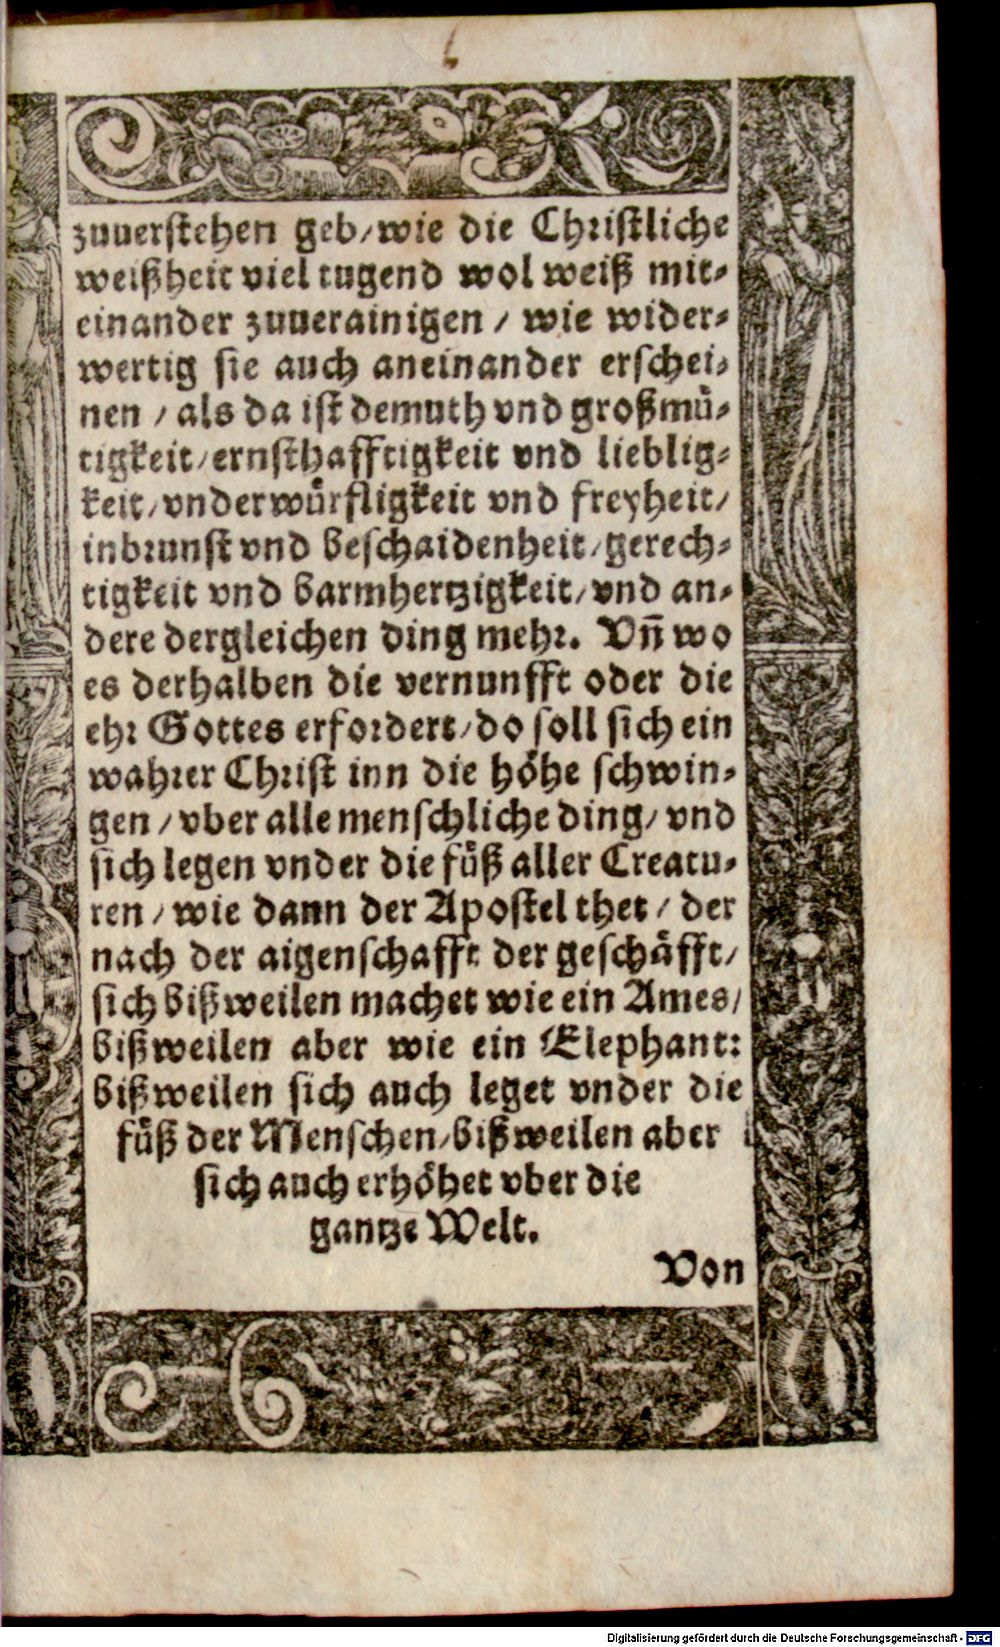 zuuerstehen geb/wie die Christliche
weißheit viel tugend wol weiß mit-
einander zuuerainigen / wie wider-
wertig sie auch aneinander erschei-
nen / als da ist demuth vnd großmuͤ-
tigkeit/ernsthafftigkeit vnd lieblig-
keit/vnderwuͤrfligkeit vnd freyheit/
inbrunst vnd beschaidenheit/gerech-
tigkeit vnd barmhertzigkeit/vnd an-
dere dergleichen ding mehr. Vñ wo
es derhalben die vernunfft oder die
ehr Gottes erfordert/do soll sich ein
wahrer Christ inn die hoͤhe schwin-
gen / vber alle menschliche ding/ vnd
sich legen vnder die fuͤß aller Creatu-
ren / wie dann der Apostel thet / der
nach der aigenschafft der geschaͤfft/
sich bißweilen machet wie ein Ames/
bißweilen aber wie ein Elephant:
bißweilen sich auch leget vnder die
fuͤß der Menschen/bißweilen aber
sich auch erhoͤhet vber die
gantze Welt.
Von
Digitalisierung gefördert durch die Deutsche Forschungsgemeinschaft - DFG